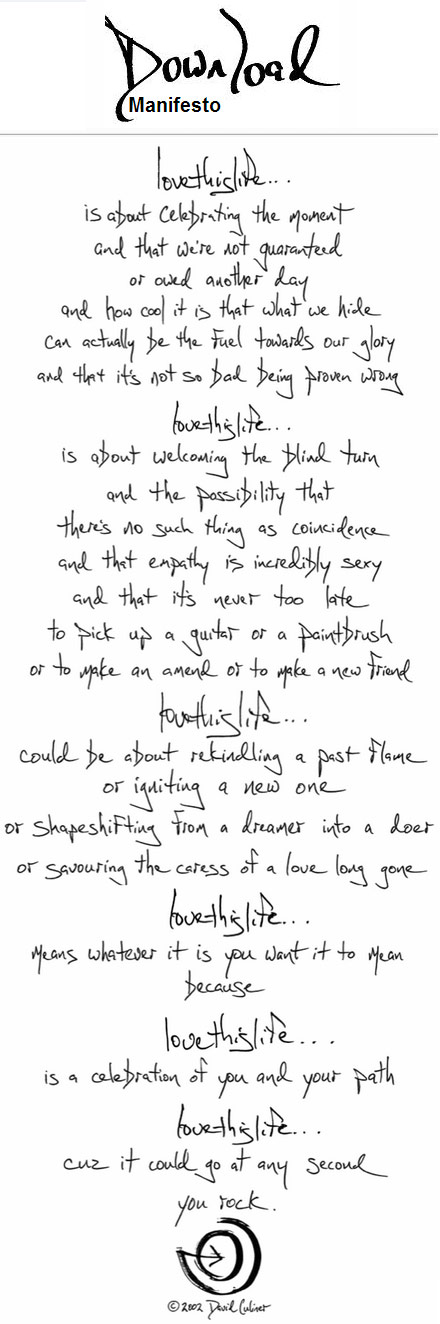 Download
Manifesto
lovethislife...
is about celebrating the moment
and that we're not guaranteed
or owed another day
and how cool it is that what we hide
can actually be the fuel towards our glory
and that it's not so bad being proven wrong
lovethislife...
is about welcoming the blind turn
and the possibility that
there's no such thing as coincidence
and that empathy is incredibly sexy
and that it's never too late
to pick up a guitar or a paintbrush
or to make an amend or to make a new friend
lovethislife...
could be about rekindling a past flame
or igniting a new one
or shapeshifting from a dreamer into a doer
or savouring the caress of a love long gone
lovethislife...
means whatever it is you want it to mean
because
lovethislife...
is a celebration of you and your path
lovethislife...
cuz it could go at any second
you rock.
©2002 David Culiner